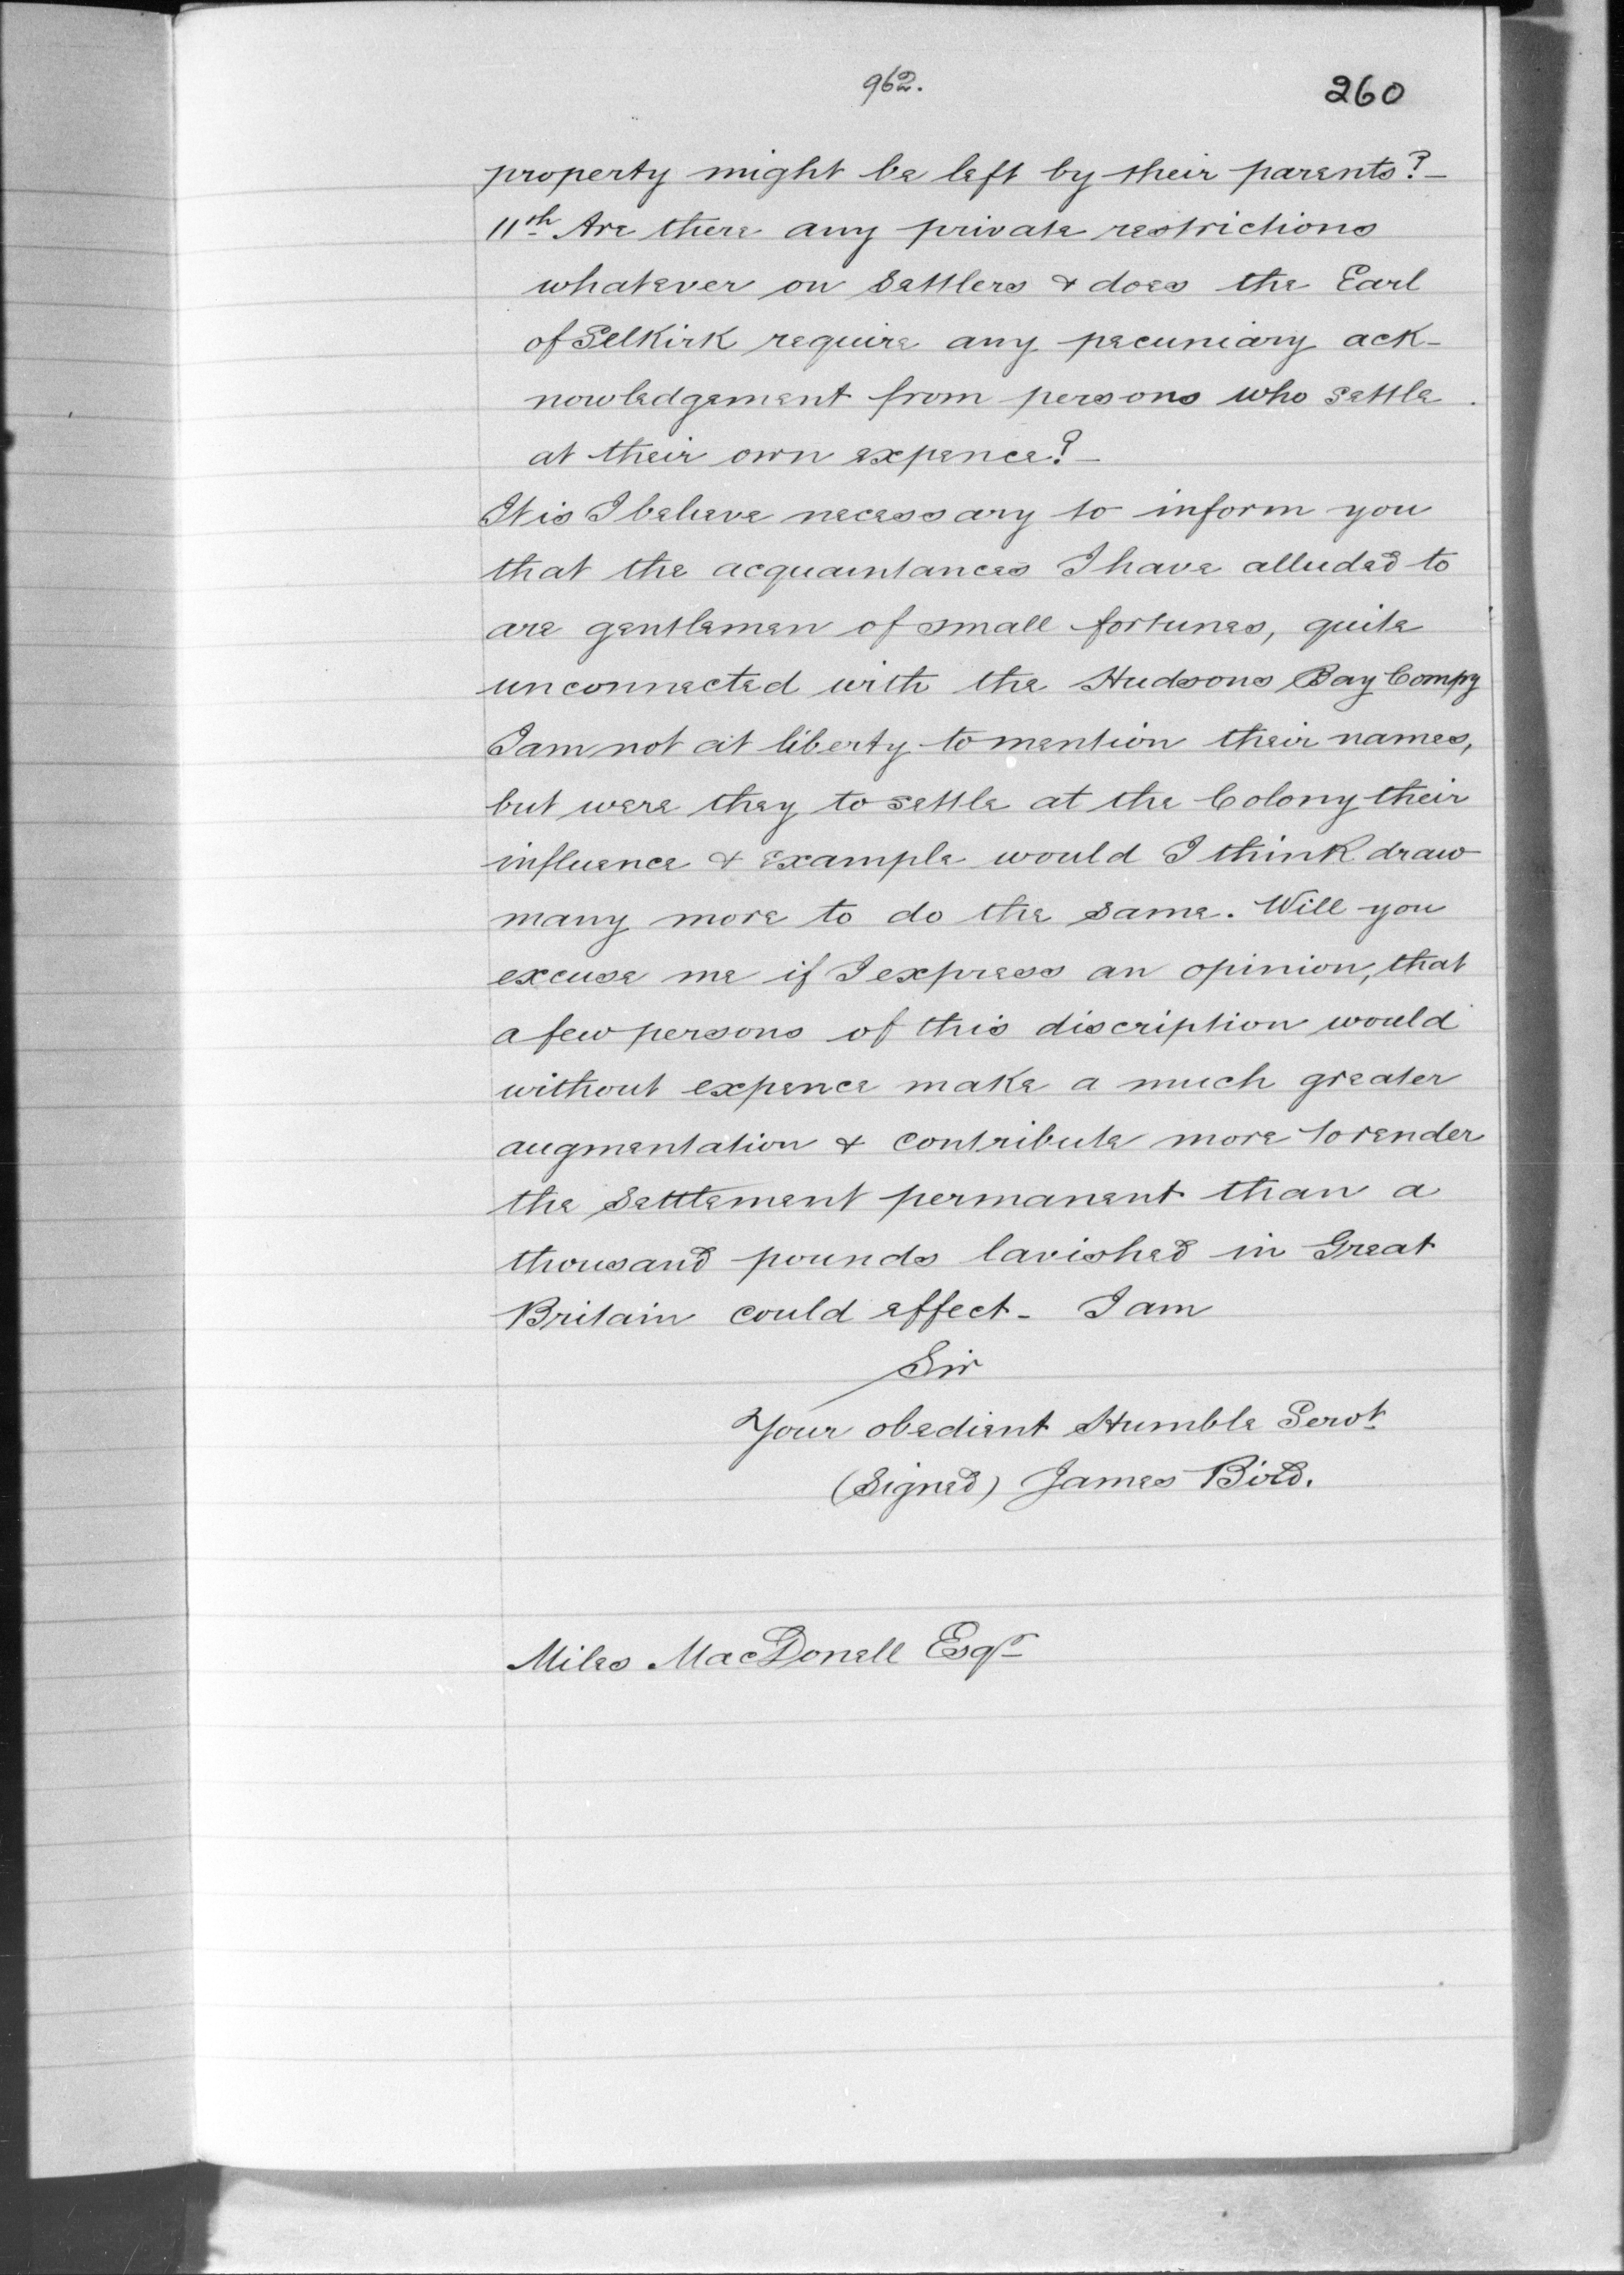 962.
260
property might be left by their parents?-
11th Are there any private restrictions
whatever on Settlers & does the Earl
of Selkirk require any pecuniary ack-
nowledgement from persons who settle
at their own expence?-
It is I beleve necessary to inform you
that the acquaintances I have alluded to
are gentlemen of small fortunes, quite
unconnected with the Hudsons Bay Compy
I am not at liberty to mention their names,
but were they to settle at the Colony their
influence & example would I think draw
many more to do the same. Will you
excuse me if I express an opinion, that
a few persons of this discription would
without expence make a much greater
augmentation & contribute more to render
the Settlement permanent than a
thousand pounds lavished in Great
Britain could effect - I am
Sir
Your obedient Humble Servt
(Signed) James Bird.
Miles MacDonell Esqr